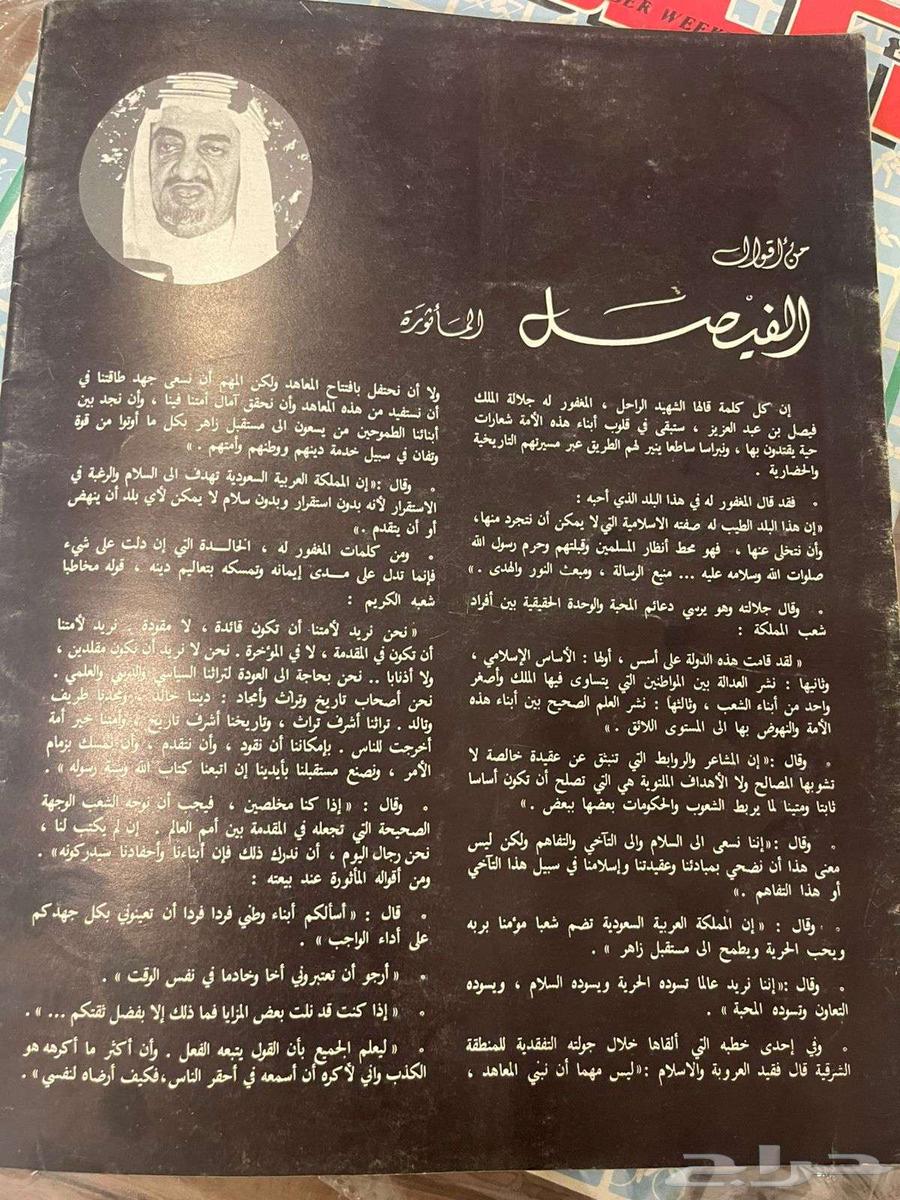 DER WEEK
من أقوال
الفيصل المأثورة
إن كل كلمة قالها الشهيد الراحل ، المغفور له جلالة الملك
فيصل بن عبد العزيز ، ستبقى في قلوب أبناء هذه الأمة شعارات
حية يقتدون بها ، ونبراسا ساطعا ينير لهم الطريق عبر مسيرتهم التاريخية
والحضارية .
• فقد قال المغفور له في هذا البلد الذي أحبه :
«إن هذا البلد الطيب له صفته الاسلامية التي لا يمكن أن نتجرد منها،
وأن نتخلى عنها ، فهو محط أنظار المسلمين وقبلتهم وحرم رسول الله
صلوات الله وسلامه عليه ... منبع الرسالة ، ومبعث النور والهدى .»
• وقال جلالته وهو يرسي دعائم المحبة والوحدة الحقيقية بين أفراد
شعب المملكة :
« لقد قامت هذه الدولة على أسس ، أولها : الأساس الإسلامي ،
وثانيها : نشر العدالة بين المواطنين التي يتساوى فيها الملك وأصغر
واحد من أبناء الشعب ، وثالثها : نشر العلم الصحيح بين أبناء هذه
الأمة والنهوض بها الى المستوى اللائق .»
• وقال :«إن المشاعر والروابط التي تنبثق عن عقيدة خالصة لا
تشوبها المصالح ولا الأهداف الملتوية هي التي تصلح أن تكون أساسا
ثابتا ومتينا لما يربط الشعوب والحكومات بعضها ببعض .»
• وقال :«إننا نسعى الى السلام والى التآخي والتفاهم ولكن ليس
معنى هذا أن نضحي بمبادئنا وعقيدتنا وإسلامنا في سبيل هذا التآخي
أو هذا التفاهم .»
• وقال : « إن المملكة العربية السعودية تضم شعبا مؤمنا بربه
ويحب الحرية ويطمح الى مستقبل زاهر » .
• وقال :«إننا نريد عالما تسوده الحرية ويسوده السلام ، ويسوده
التعاون وتسوده المحبة » .
• وفي إحدى خطبه التي ألقاها خلال جولته التفقدية للمنطقة
الشرقية قال فقيد العروبة والاسلام :«ليس مهما أن نبني المعاهد ،
ولا أن نحتفل بافتتاح المعاهد ولكن المهم أن نسعى جهد طاقتنا في
أن نستفيد من هذه المعاهد وأن نحقق آمال أمتنا فينا ، وأن نجد بين
أبنائنا الطموحين من يسعون الى مستقبل زاهر بكل ما أوتوا من قوة
وتفان في سبيل خدمة دينهم ووطنهم وأمتهم .»
• وقال :«إن المملكة العربية السعودية تهدف الى السلام والرغبة في
الاستقرار لأنه بدون استقرار وبدون سلام لا يمكن لأي بلد أن ينهض
أو أن يتقدم .»
• ومن كلمات المغفور له ، الخالدة التي إن دلت على شيء
فإنما تدل على مدى إيمانه وتمسكه بتعاليم دينه ، قوله مخاطبا
شعبه الكريم :
« نحن نريد لأمتنا أن تكون قائدة ، لا مقودة . نريد لأمتنا
أن تكون في المقدمة ، لا في المؤخرة . نحن لا نريد أن نكون مقلدين ،
ولا أذنابا .. نحن بحاجة الى العودة لتراثنا السياسي والديني والعلمي .
نحن أصحاب تاريخ وتراث وأمجاد : ديننا خالد ، ومجدنا طريف
وتالد . تراثنا أشرف تراث ، وتاريخنا أشرف تاريخ ، وأمتنا خير أمة
أخرجت للناس . بإمكاننا أن نقود ، وأن نتقدم ، وأن نمسك بزمام
الأمر ، ونصنع مستقبلنا بأيدينا إن اتبعنا كتاب الله وسنة رسوله» .
• وقال : « إذا كنا مخلصين ، فيجب أن نوجه الشعب الوجهة
الصحيحة التي تجعله في المقدمة بين أمم العالم . إن لم يكتب لنا ،
نحن رجال اليوم ، أن ندرك ذلك فإن أبناءنا وأحفادنا سيدركونه» .
ومن أقواله المأثورة عند بيعته :
• قال : « أسألكم أبناء وطني فردا فردا أن تعينوني بكل جهدكم
على أداء الواجب » .
• « أرجو أن تعتبروني أخا وخادما في نفس الوقت » .
• « إذا كنت قد نلت بعض المزايا فما ذلك إلا بفضل ثقتكم ... » .
• « ليعلم الجميع بأن القول يتبعه الفعل . وأن أكثر ما أكرهه هو
الكذب واني لأكره أن أسمعه في أحقر الناس، فكيف أرضاه لنفسي» .
حراج